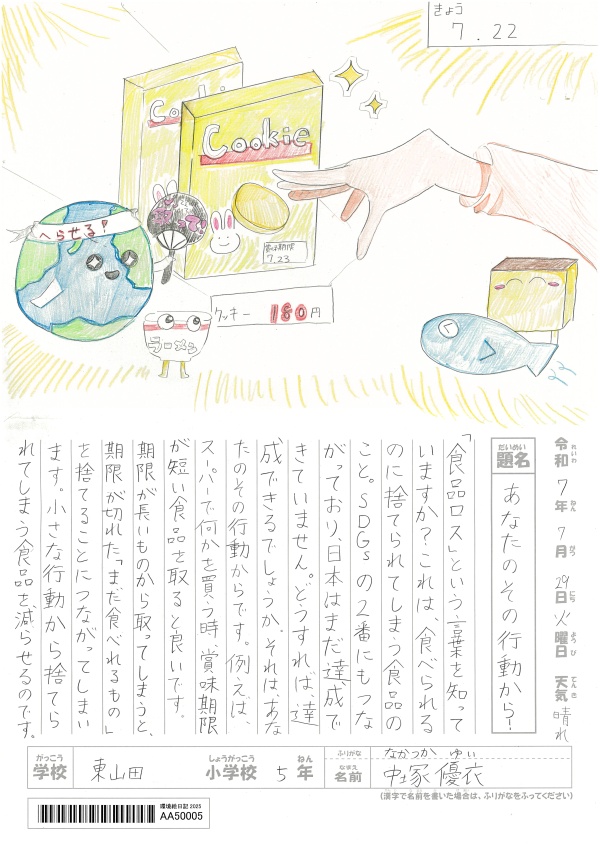 きょう
7.22
Cooki
Cookie
賞味期限
7.23
へらせる!
クッキー 180円
ラーメン
令和7年7月29日火曜日 天気 晴れ
れいわ ねん がつ にち ようび てんき
だいめい
題名 あなたのその行動から!
「食品ロス」という言葉を知って
いますか?これは、食べられる
のに捨てられてしまう食品の
こと。SDGsの2番にもつな
がっており、日本はまだ達成で
きていません。どうすれば、達
成できるでしょうか。それは、あな
たのその行動からです。例えば、
スーパーで何かを買う時、賞味期限
が短い食品を取ると良いです。
期限が長いものから取ってしまうと、
期限が切れた「まだ食べれるもの」
を捨てることにつながってしまい
ます。小さな行動から捨てら
れてしまう食品を減らせるのです。
がっこう しょうがっこう ねん ふりがな なかつか ゆい
学校 東山田 小学校 5年 なまえ 名前 中塚 優衣
(漢字で名前を書いた場合は、ふりがなをふってください)
環境絵日記 2025
AA50005